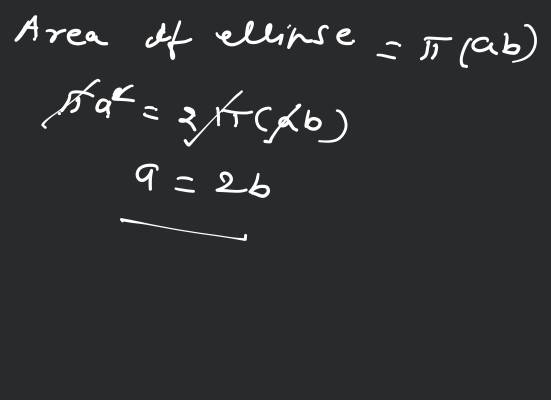 Area of ellipse = π(ab)
πa² = 2π(ab)
a = 2b